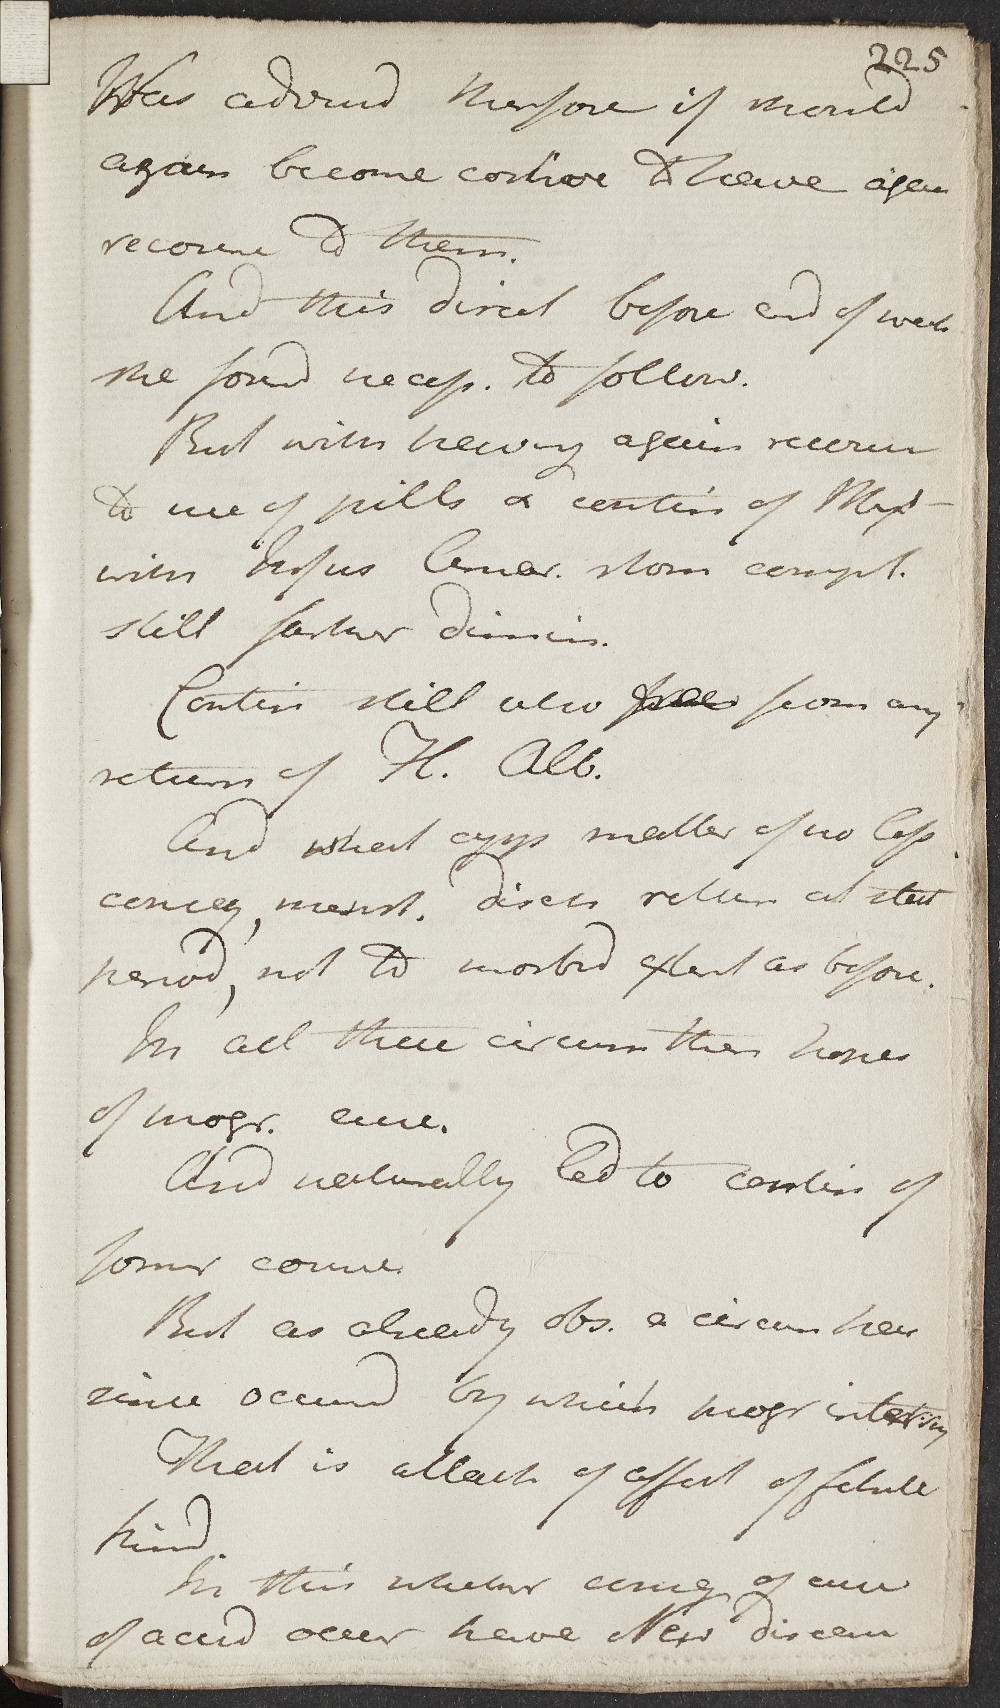 225
Was advised therefore if should
again become costive to have again
recourse to them.
And this direct before end of week
she found necess. to follow.
But with having again recourse
to use of pills & contin of Mixt
with Infus Amar. stom compl.
still farther dimin.
Contin still also free from any
return of H. Alb.
And what appr matter of no less
conseq, menst. disch return at stat
period, not to morbid extent as before.
In all these circum then hopes
of progr. cure.
And naturally led to contin of
former course.
But as already obs. a circum has
since occurred by which progr
That is attack of affect of febrile
kind
In this whether conseq of cure
of accid occur have New disease